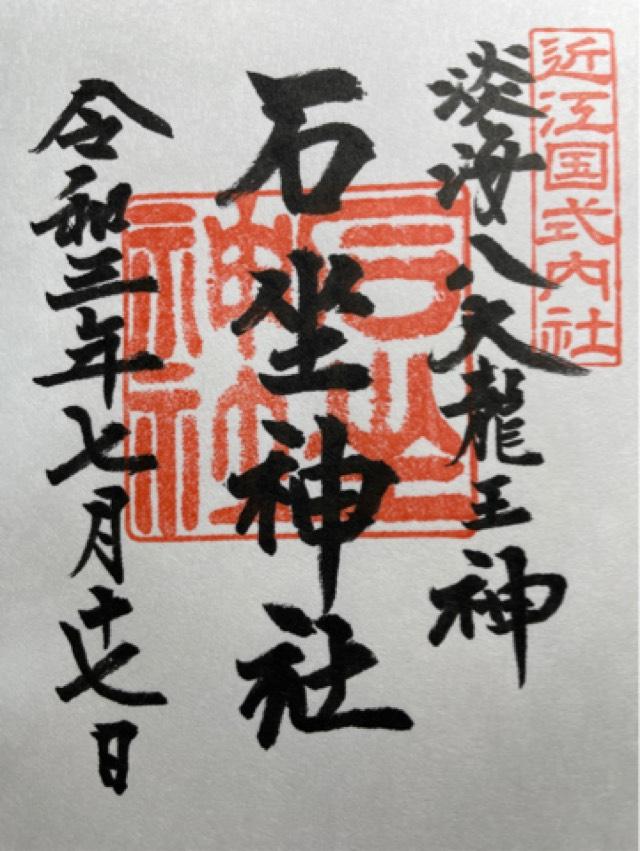 近江国式内社
淡海八大龍王神
石坐神社
石坐神社
令和三年七月十七日